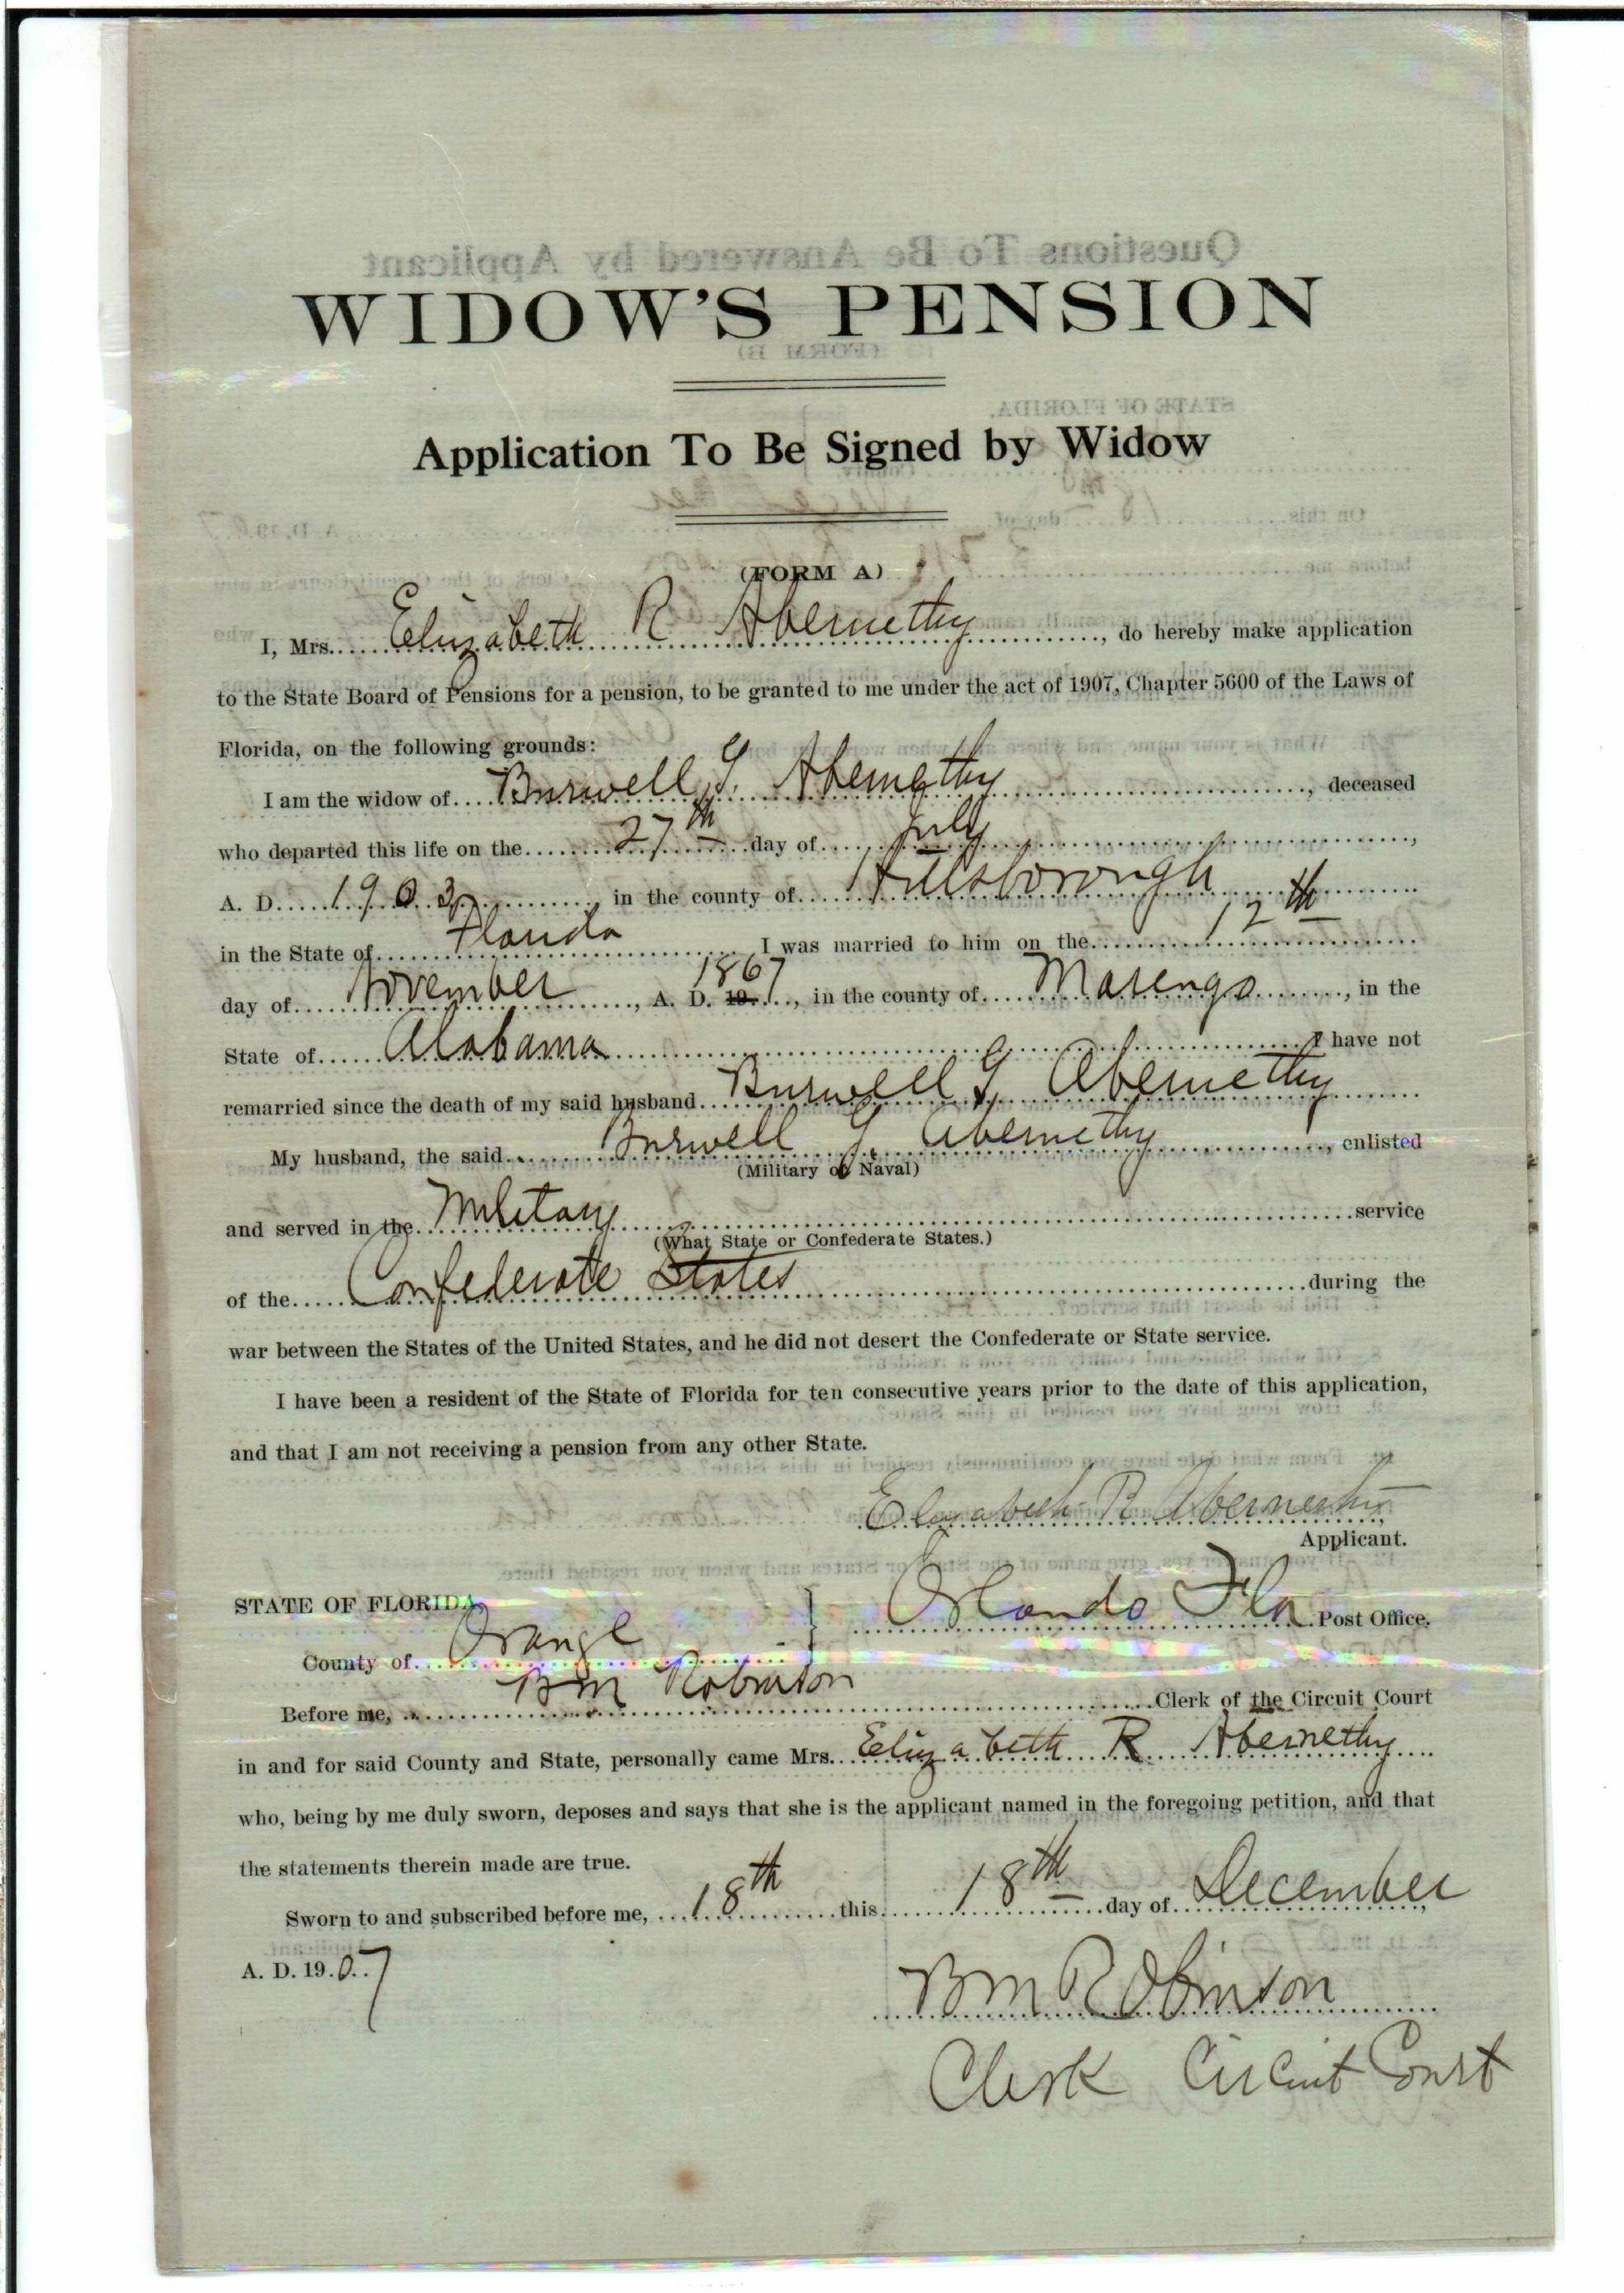 WIDOW'S PENSION
Application To Be Signed by Widow
(FORM A)
I, Mrs. Elizabeth R Abernethy, do hereby make application
to the State Board of Pensions for a pension, to be granted to me under the act of 1907, Chapter 5600 of the Laws of
Florida, on the following grounds:
I am the widow of Burwell G. Abernethy, deceased
who departed this life on the 27th day of July,
A. D. 1903, in the county of Hillsborough
in the State of Florida I was married to him on the 12th
day of November, A. D. 19 1867, in the county of Marengo, in the
State of Alabama I have not
remarried since the death of my said husband Burwell G. Abernethy
My husband, the said Burwell G. Abernethy, enlisted
(Military or Naval)
and served in the Military service
(What State or Confederate States.)
of the Confederate States during the
war between the States of the United States, and he did not desert the Confederate or State service.
I have been a resident of the State of Florida for ten consecutive years prior to the date of this application,
and that I am not receiving a pension from any other State.
Elizabeth R Abernethy
Applicant.
STATE OF FLORIDA, Orlando Fla Post Office.
County of Orange
Before me, B M Robinson Clerk of the Circuit Court
in and for said County and State, personally came Mrs. Elizabeth R Abernethy
who, being by me duly sworn, deposes and says that she is the applicant named in the foregoing petition, and that
the statements therein made are true.
Sworn to and subscribed before me, 18th this 18th day of December,
A. D. 1907
B M Robinson
Clerk Circuit Court